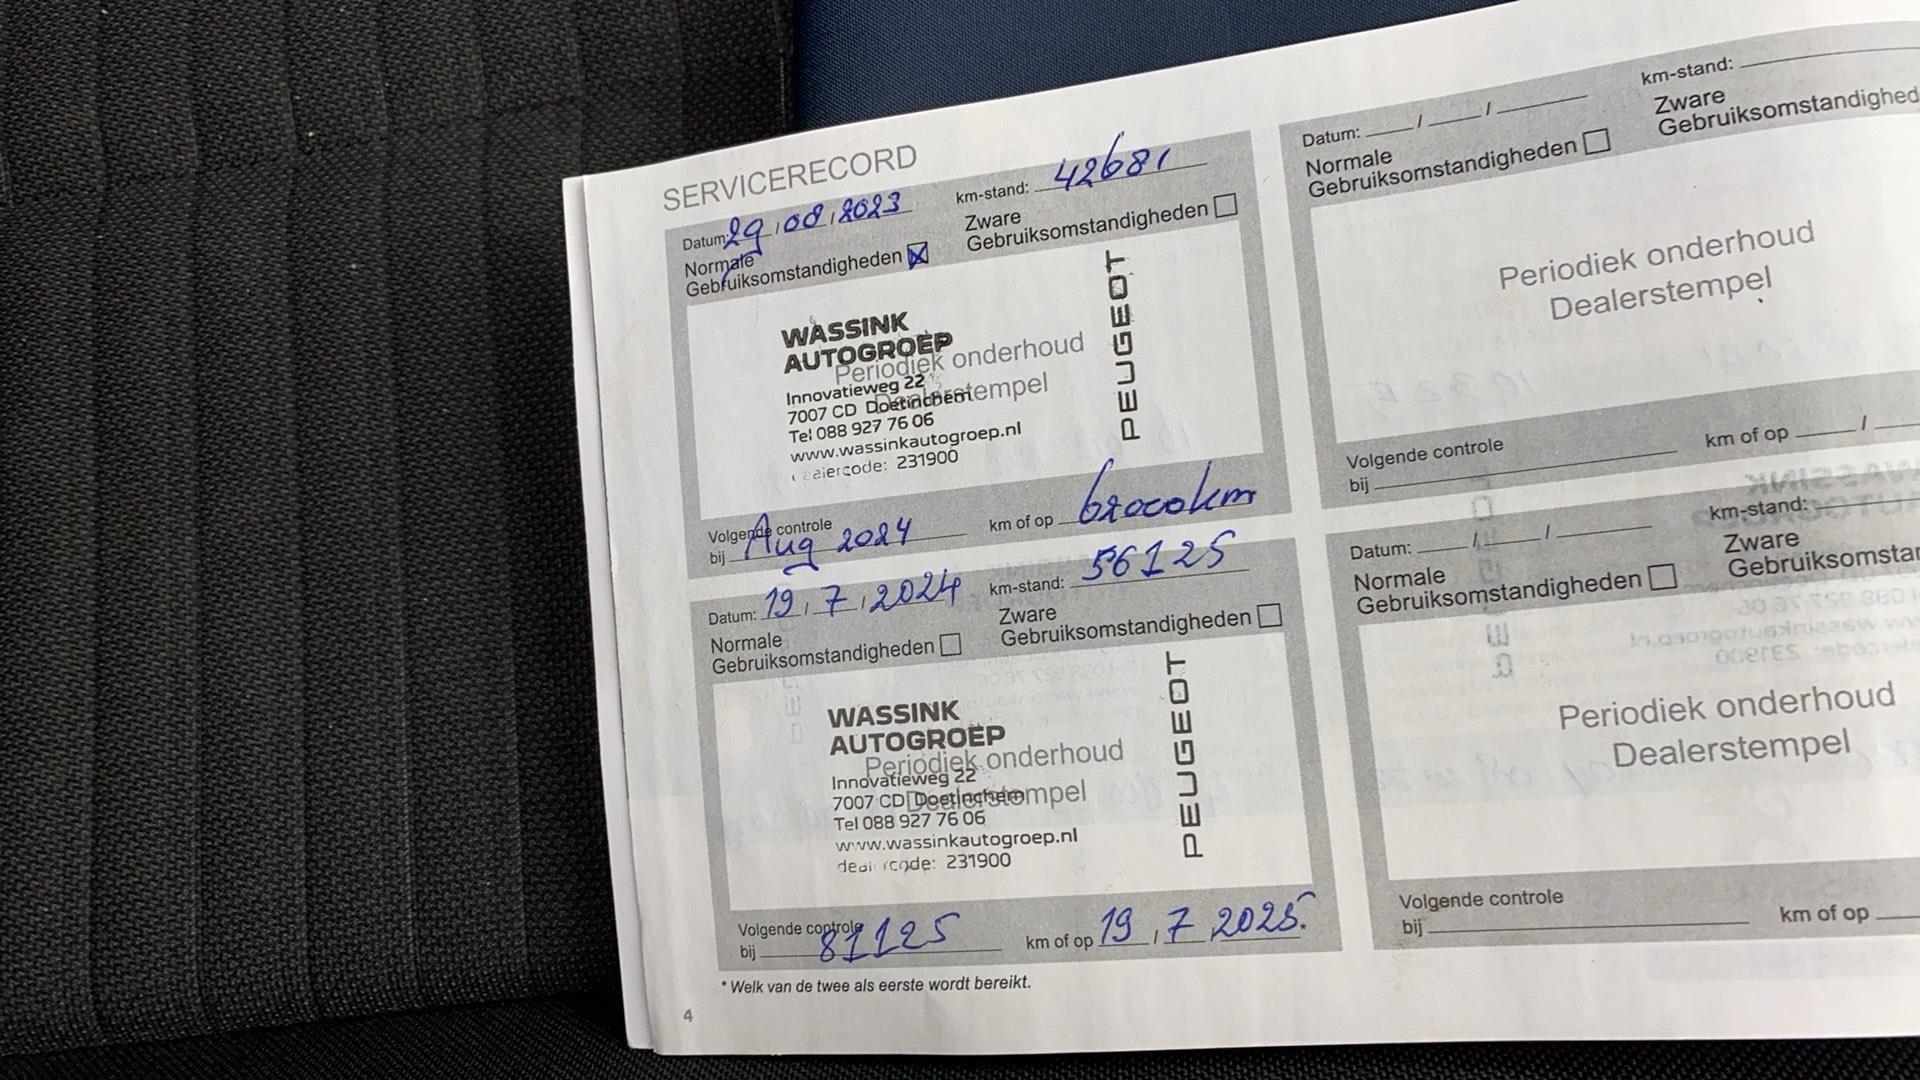 SERVICERECORD
Datum: 29 / 08 / 2023 km-stand: 42681
Normale
Gebruiksomstandigheden
Zware
Gebruiksomstandigheden
WASSINK
AUTOGROEP
Periodiek onderhoud
Dealerstempel
Innovatieweg 22
7007 CD Doetinchem
Tel 088 927 76 06
www.wassinkautogroep.nl
dealercode: 231900
PEUGEOT
Volgende controle
bij Aug 2024 km of op 62000km
Datum: 19 / 7 / 2024 km-stand: 56125
Normale
Gebruiksomstandigheden
Zware
Gebruiksomstandigheden
WASSINK
AUTOGROEP
Periodiek onderhoud
Dealerstempel
Innovatieweg 22
7007 CD Doetinchem
Tel 088 927 76 06
www.wassinkautogroep.nl
dealercode: 231900
PEUGEOT
Volgende controle
bij 81125 km of op 19 / 7 2025.
* Welk van de twee als eerste wordt bereikt.
4
Datum: / / km-stand:
Normale
Gebruiksomstandigheden
Zware
Gebruiksomstandighed
Periodiek onderhoud
Dealerstempel
Volgende controle
bij km of op /
Datum: / / km-stand:
Normale
Gebruiksomstandigheden
Zware
Gebruiksomstan
Periodiek onderhoud
Dealerstempel
Volgende controle
bij km of op